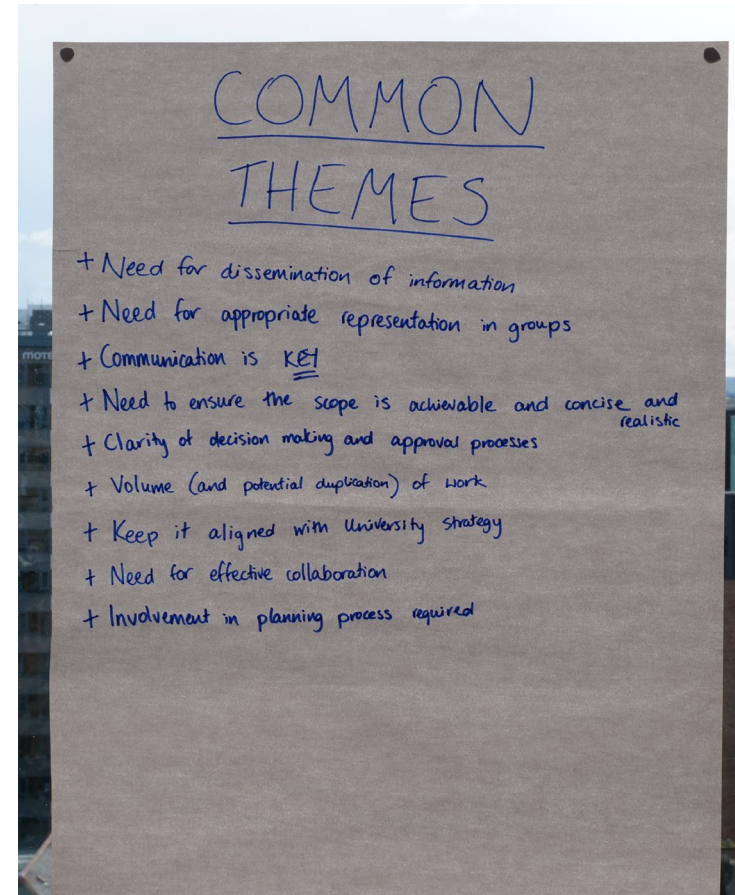 COMMON
THEMES
+ Need for dissemination of information
+ Need for appropriate representation in groups
+ Communication is KEY
+ Need to ensure the scope is achievable and concise and
realistic
+ Clarity of decision making and approval processes
+ Volume (and potential duplication) of work
+ Keep it aligned with University strategy
+ Need for effective collaboration
+ Involvement in planning process required
MOTE